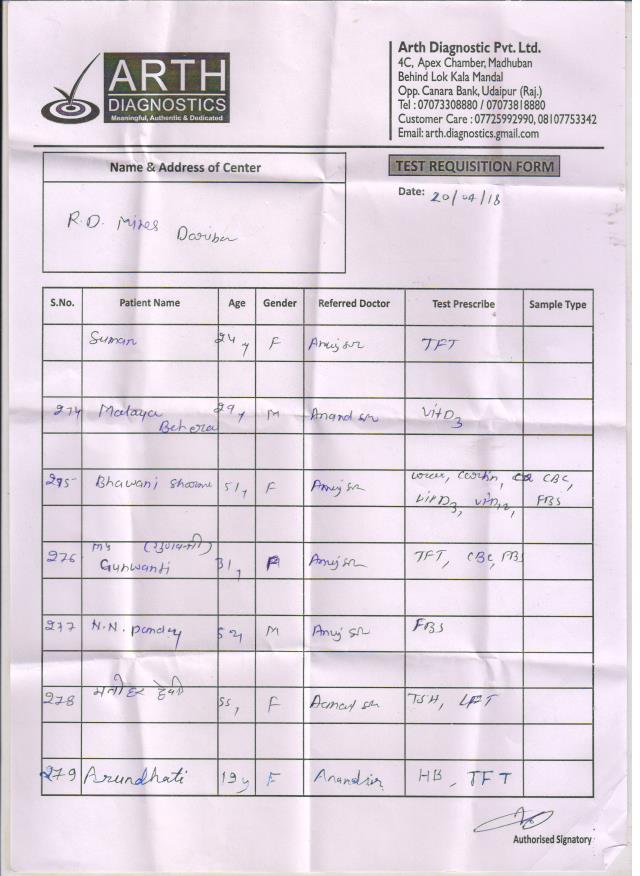 ARTH
DIAGNOSTICS
Meaningful, Authentic & Dedicated
Arth Diagnostic Pvt. Ltd.
4C, Apex Chamber, Madhuban
Behind Lok Kala Mandal
Opp. Canara Bank, Udaipur (Raj.)
Tel : 07073308880 / 07073818880
Customer Care : 07725992990, 08107753342
Email: arth.diagnostics.gmail.com
Name & Address of Center
TEST REQUISITION FORM
Date: 20/04/18
R.D. Mines Dariba
S.No. Patient Name Age Gender Referred Doctor Test Prescribe Sample Type
Suman 24y F Anuj sir TFT
274 Malaya Behera 29y M Anand sir VitD3
275 Bhawani 51y F Anuj sir CBC,
VitD3, vitB12, FBS
276 Ms
Gunwanti 31y F Anuj sir TFT, CBC, FBS
277 N.N. Pandey 52y M Anuj sir FBS
278 देवी 55y F sir TSH, LFT
279 Arundhati 19y F Anand sir HB, TFT
Authorised Signatory